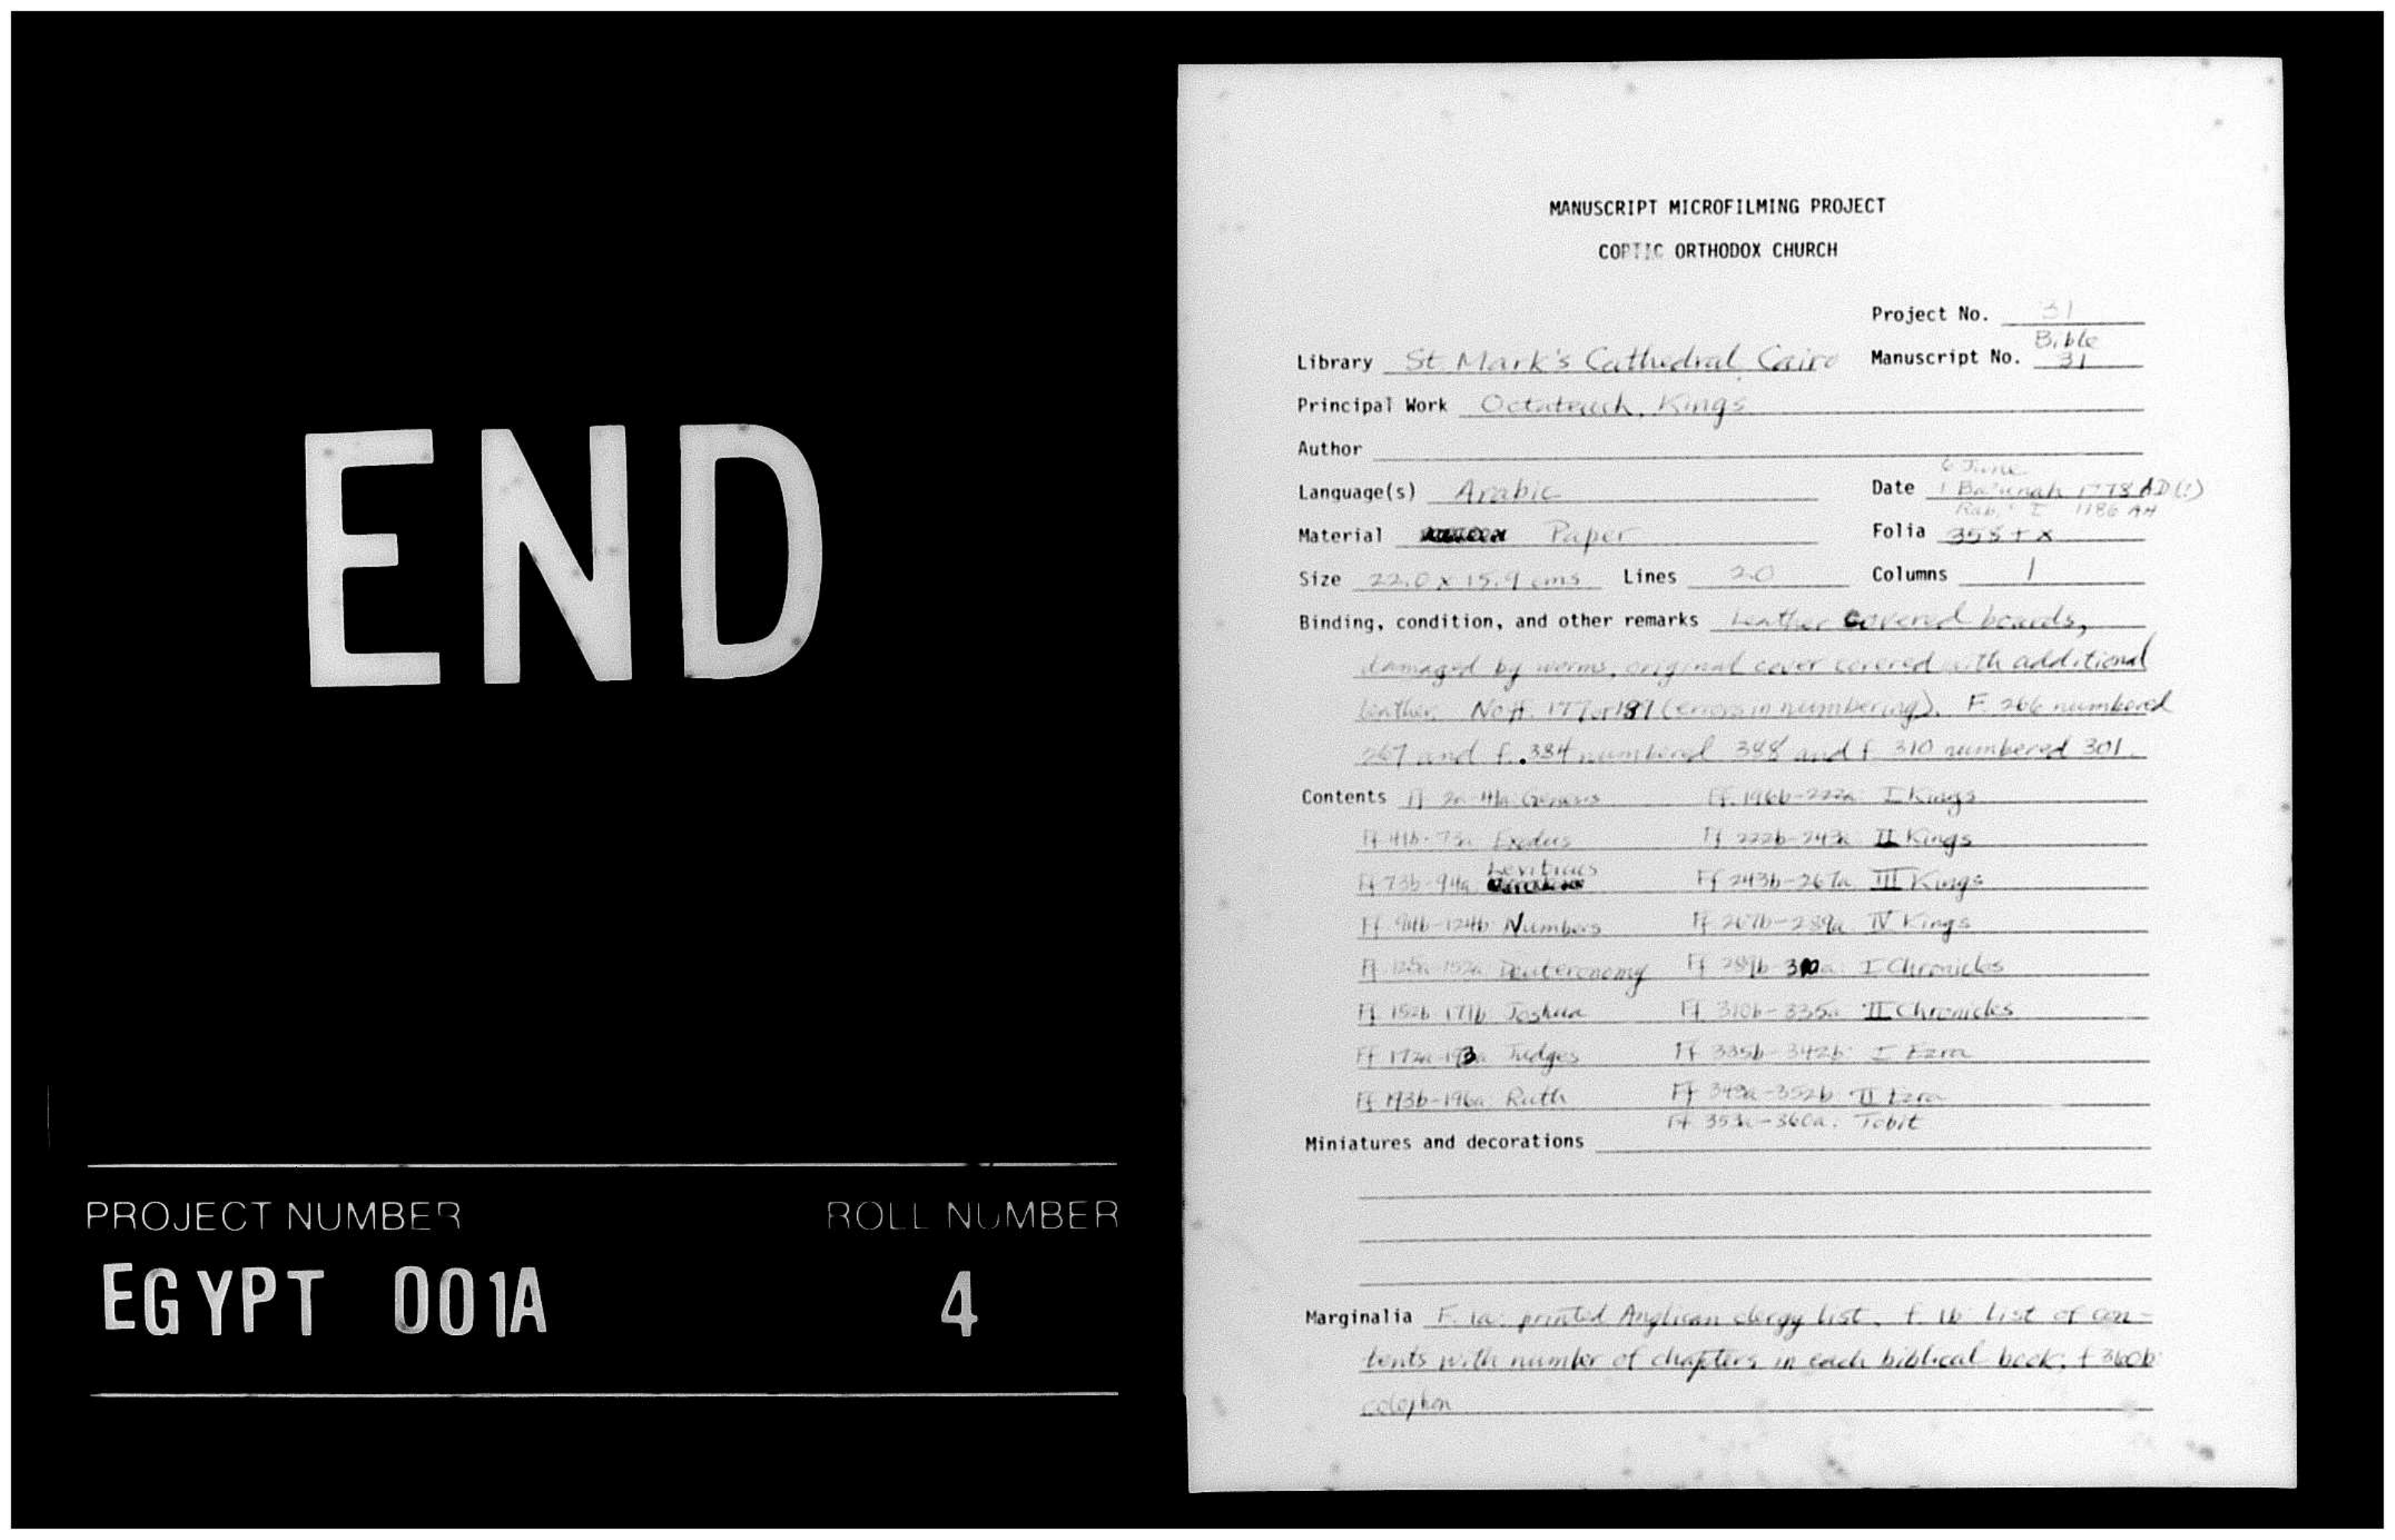 END
PROJECT NUMBER ROLL NUMBER
EGYPT 001A 4
MANUSCRIPT MICROFILMING PROJECT
COPTIC ORTHODOX CHURCH
Project No. 31
Library St. Mark's Cathedral, Cairo Manuscript No. Bible 31
Principal Work Octateuch, Kings
Author
Language(s) Arabic Date 6 June
1 Ba'unah 1778 AD (!)
Rabi' I 1186 AH
Material Paper Folia 358 + x
Size 22.0 x 15.9 cms. Lines 20 Columns 1
Binding, condition, and other remarks Leather covered boards,
damaged by worms, original cover covered with additional
leather. No ff. 177 or 187 (errors in numbering). F. 266 numbered
267 and f. 334 numbered 348 and f. 310 numbered 301.
Contents Ff. 2a-41a: Genesis Ff. 196b-222a: I Kings
Ff. 41b-73a: Exodus Ff. 222b-243a: II Kings
Ff. 73b-94a: Leviticus Ff. 243b-267a: III Kings
Ff. 94b-124b: Numbers Ff. 267b-289a: IV Kings
Ff. 125a-152a: Deuteronomy Ff. 289b-310a: I Chronicles
Ff. 152b-171b: Joshua Ff. 310b-335a: II Chronicles
Ff. 172a-193a: Judges Ff. 335b-342b: I Ezra
Ff. 193b-196a: Ruth Ff. 343a-352b: II Ezra
Ff. 353a-360a: Tobit
Miniatures and decorations
Marginalia F. 1a: printed Anglican clergy list. f. 1b: List of con-
tents with number of chapters in each biblical book. f. 360b:
colophon